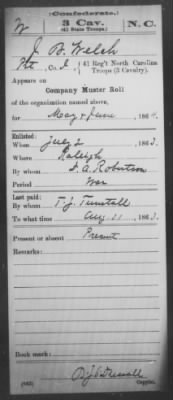 (Confederate.)
W 3 Cav. N.C.
(41 State Troops.)
J. B. Welch
Pvt, Co. I, 41 Reg't North Carolina Troops (3 Cavalry).
Appears on
Company Muster Roll
of the organization named above,
for May & June, 1864.
Enlisted:
When July 2, 1863.
Where Raleigh
By whom
Period War
Last paid:
By whom T. J. Tunstall
To what time Aug 31, 1863.
Present or absent Present
Remarks:
Book mark:
(642) Copyist.